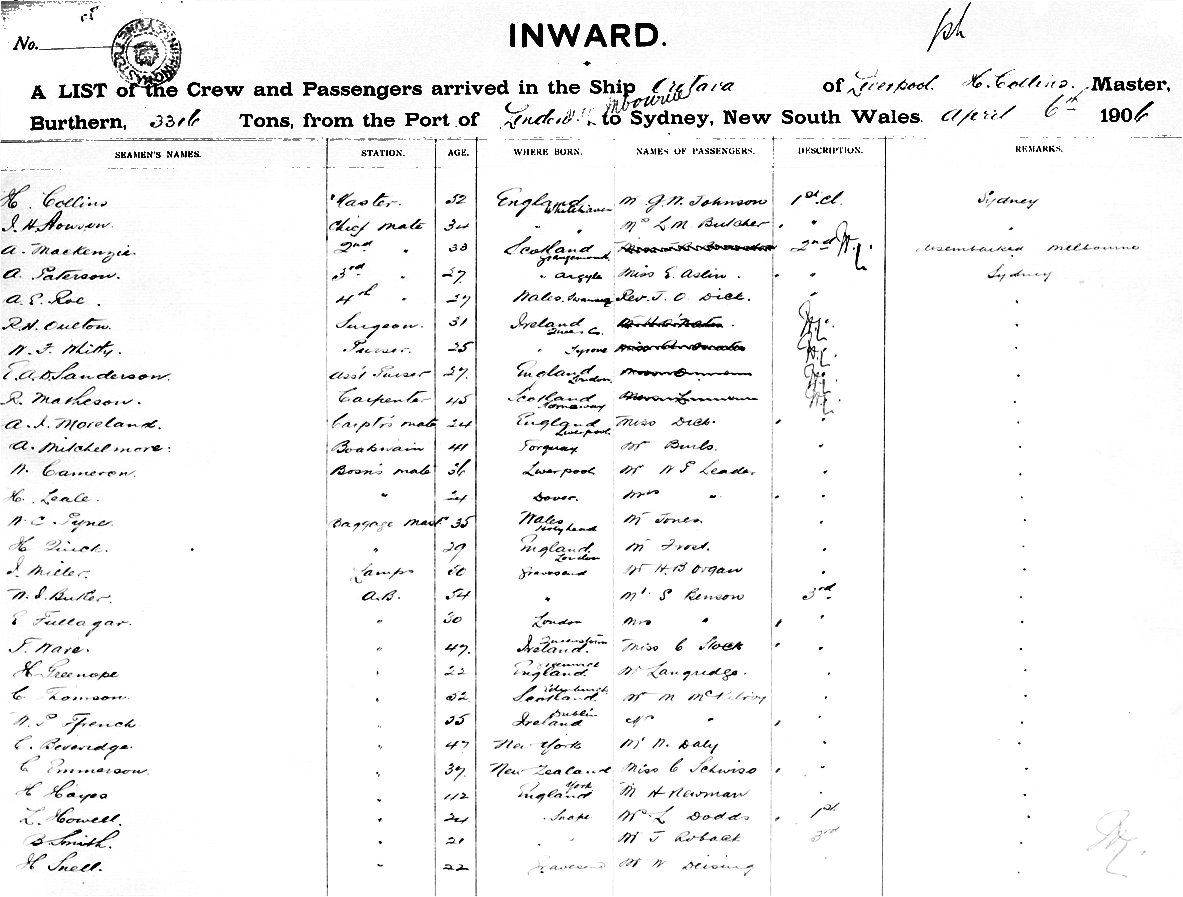 No.
INWARD.
A LIST of the Crew and Passengers arrived in the Ship Orotava of Liverpool H. Collins, Master,
Burthern, 3306 Tons, from the Port of to Sydney, New South Wales. April 6th 1906
SEAMEN'S NAMES. STATION. AGE. WHERE BORN. NAMES OF PASSENGERS. DESCRIPTION. REMARKS.
H. Collins Master. 52 England Whitehaven M J.W. Johnson 1st cl. Sydney
Chief mate 34 " " Mrs L M Butcher " "
A. Mackenzie 2nd " 33 Scotland Grangemouth 2nd disembarked Melbourne
A. Paterson. 3rd " 27 " Argyle Miss E. Aslin. " Sydney
A. E. Roe. 4th " 27 Wales. Swansea Rev. J. O. Dick. "
R. H. Oulton. Surgeon. 31 Ireland
W. F. Whitty. Purser. 25 " Tyrone
Sanderson. Asst Purser 27. England London.
R. Matheson. Carpenter 45 Scotland
A. J. Moreland. Carptr's mate 24 England Liverpool Miss Dick. "
A. Mitchelmore. Boatswain 41 Torquay Mr Burls. "
W. Cameron. Bosn's mate 36 Liverpool Mr W E Leader "
H. Leale. " 24 Dover. Mrs " "
W. C. Pyne. Baggage Mastr 35 Wales Holyhead Mr Jones. "
H. " 29 England London Mr Frost. "
J. Miller. Lamps 50 Gravesend Mr H. B Organ "
Butler. A.B. 54 " Mr S Benson 3rd
E Fullagar. " 30 London Mrs " "
F. Ware. " 47. Ireland. Queenstown Miss C "
H Greenope " 22 England. Greenwich Mr Langridge. "
C. Thomson. " 52 Scotland. Edinburgh Mr M "
W. P. Ffrench " 35 Ireland Dublin " "
C. Beveridge. " 47 New York Mr W. Daly "
C Emmerson. " 37. New Zealand Miss C Schwiso "
H Hayes " 42 England York M H Newman "
L. Howell. " 24 " Snape L Dodds
B Smith. " 21 " Mr J 3rd
H Snell. " 22 Gravesend Mr W Deising "